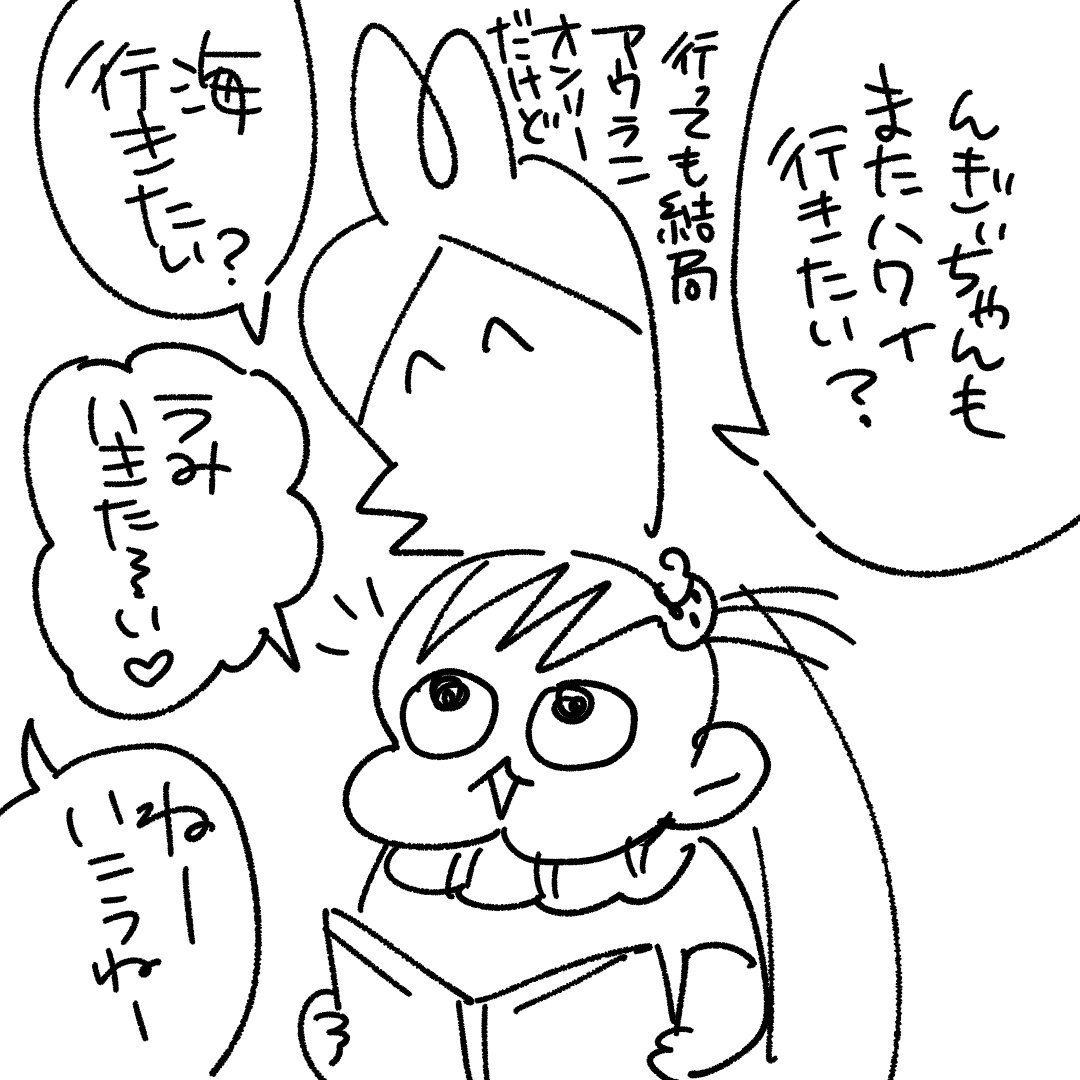 んぎぃちゃんも
またハワイ
行きたい?
行っても結局
アウラニ
オンリー
だけど
海
行きたい?
うみ
いきた〜い♡
ねー
いこうねー